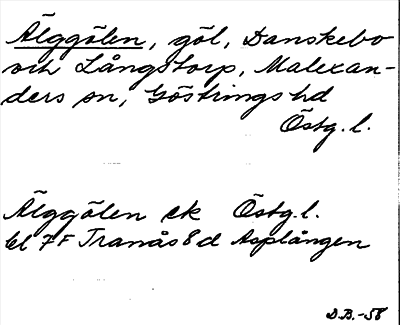 Älggölen, göl, Danskebo
och Långstorp, Malexan-
ders sn, Göstrings hd
Östg. l.
Älggölen ek Östg. l.
bl 7F Tranås 8d Asplången
D.B.-58